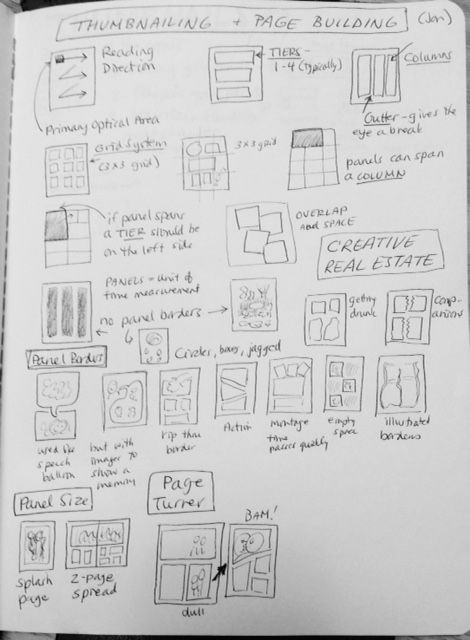 THUMBNAILING + PAGE BUILDING (Jan)
Reading
Direction
TIERS -
1-4 (typically)
Columns
Primary Optical Area
Gutter - gives the
eye a break
Grid System
(3x3 grid)
3x3 grid
panels can span
a COLUMN
if panel spans
a TIER should be
on the left side
OVERLAP
and SPACE
CREATIVE
REAL ESTATE
PANELS = unit of
time measurement
no panel borders
getting
drunk
comp-
anions
Panel Borders
Circles, boxes, jagged
used like
speech
balloon
but with
images to
show a
memory
rip thru
border
Action
montage
time
passes quickly
empty
space
illustrated
borders
Panel Size
Page
Turner
BAM!
splash
page
2-page
spread
dull